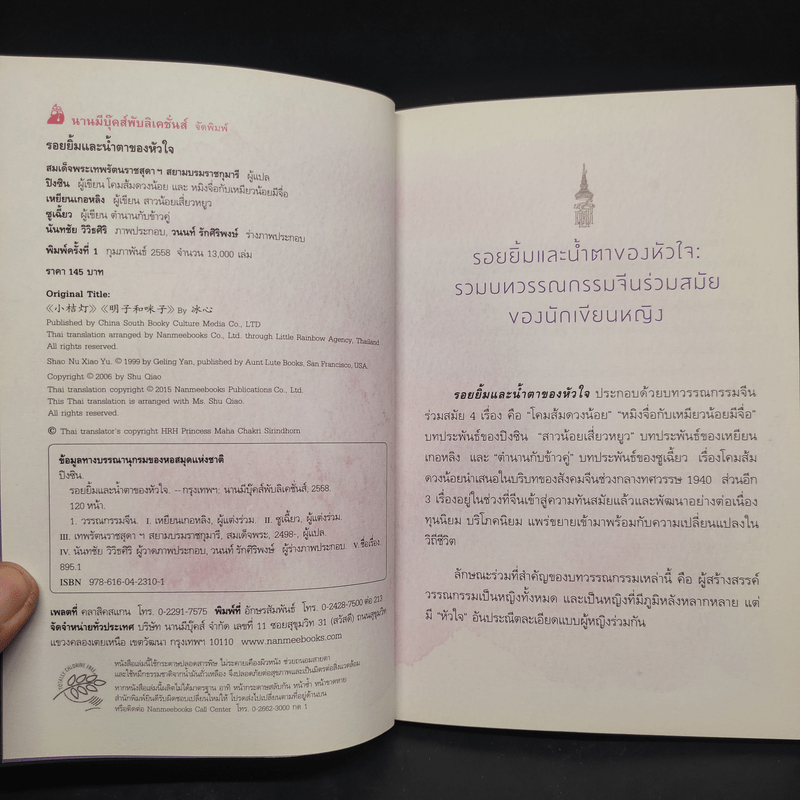 นานมีบุ๊คส์พับลิเคชั่นส์ จัดพิมพ์
รอยยิ้มและน้ำตาของหัวใจ
สมเด็จพระเทพรัตนราชสุดาฯ สยามบรมราชกุมารี ผู้แปล
ปิงซิน ผู้เขียน โคมส้มดวงน้อย และ หมิงจื่อกับเหมียวน้อยมีจื่อ
เหยียนเกอหลิง ผู้เขียน สาวน้อยเสี่ยวหยูว
ซูเฉี้ยว ผู้เขียน ตำนานกับข้าวคู่
นันทชัย วิวิธศิริ ภาพประกอบ, วนนท์ รักศิริพงษ์ ร่างภาพประกอบ
พิมพ์ครั้งที่ 1 กุมภาพันธ์ 2558 จำนวน 13,000 เล่ม
ราคา 145 บาท
Original Title:
《小桔灯》《明子和咪子》By 冰心
Published by China South Booky Culture Media Co., LTD
Thai translation arranged by Nanmeebooks Co., Ltd. through Little Rainbow Agency, Thailand
All rights reserved.
Shao Nu Xiao Yu. © 1999 by Geling Yan, published by Aunt Lute Books, San Francisco, USA.
Copyright © 2006 by Shu Qiao
Thai translation copyright © 2015 Nanmeebooks Publications Co., Ltd.
This Thai translation is arranged with Ms. Shu Qiao.
All rights reserved.
© Thai translator's copyright HRH Princess Maha Chakri Sirindhorn
ข้อมูลทางบรรณานุกรมของหอสมุดแห่งชาติ
ปิงซิน.
รอยยิ้มและน้ำตาของหัวใจ. -- กรุงเทพฯ: นานมีบุ๊คส์พับลิเคชั่นส์, 2558.
120 หน้า.
1. วรรณกรรมจีน. I. เหยียนเกอหลิง, ผู้แต่งร่วม. II. ซูเฉี้ยว, ผู้แต่งร่วม.
III. เทพรัตนราชสุดาฯ สยามบรมราชกุมารี, สมเด็จพระ, 2498-, ผู้แปล.
IV. นันทชัย วิวิธศิริ ผู้วาดภาพประกอบ, วนนท์ รักศิริพงษ์ ผู้ร่างภาพประกอบ. V. ชื่อเรื่อง.
895.1
ISBN 978-616-04-2310-1
เพลตที่ คลาสิคสแกน โทร. 0-2291-7575 พิมพ์ที่ อักษรสัมพันธ์ โทร. 0-2428-7500 ต่อ 213
จัดจำหน่ายทั่วประเทศ บริษัท นานมีบุ๊คส์ จำกัด เลขที่ 11 ซอยสุขุมวิท 31 (สวัสดี) ถนนสุขุมวิท
แขวงคลองเตยเหนือ เขตวัฒนา กรุงเทพฯ 10110 www.nanmeebooks.com
TOTALLY CHLORINE FREE
หนังสือเล่มนี้ใช้กระดาษปลอดสารพิษ ไม่ระคายเคืองผิวหนัง ช่วยถนอมสายตา
และใช้หมึกธรรมชาติจากน้ำมันถั่วเหลือง จึงปลอดภัยต่อสุขภาพและเป็นมิตรต่อสิ่งแวดล้อม
หากหนังสือเล่มนี้ผลิตไม่ได้มาตรฐาน อาทิ หน้ากระดาษสลับกัน หน้าซ้ำ หน้าขาดหาย
สำนักพิมพ์ยินดีรับผิดชอบเปลี่ยนใหม่ให้ โปรดส่งไปเปลี่ยนตามที่อยู่ด้านบน
หรือติดต่อ Nanmeebooks Call Center โทร. 0-2662-3000 กด 1
รอยยิ้มและน้ำตาของหัวใจ:
รวมบทวรรณกรรมจีนร่วมสมัย
ของนักเขียนหญิง
รอยยิ้มและน้ำตาของหัวใจ ประกอบด้วยบทวรรณกรรมจีน
ร่วมสมัย 4 เรื่อง คือ “โคมส้มดวงน้อย” “หมิงจื่อกับเหมียวน้อยมีจื่อ”
บทประพันธ์ของปิงซิน “สาวน้อยเสี่ยวหยูว” บทประพันธ์ของเหยียน
เกอหลิง และ “ตำนานกับข้าวคู่” บทประพันธ์ของซูเฉี้ยว เรื่องโคมส้ม
ดวงน้อยนำเสนอในบริบทของสังคมจีนช่วงกลางทศวรรษ 1940 ส่วนอีก
3 เรื่องอยู่ในช่วงที่จีนเข้าสู่ความทันสมัยแล้วและพัฒนาอย่างต่อเนื่อง
ทุนนิยม บริโภคนิยม แพร่ขยายเข้ามาพร้อมกับความเปลี่ยนแปลงใน
วิถีชีวิต
ลักษณะร่วมที่สำคัญของบทวรรณกรรมเหล่านี้ คือ ผู้สร้างสรรค์
วรรณกรรมเป็นหญิงทั้งหมด และเป็นหญิงที่มีภูมิหลังหลากหลาย แต่
มี “หัวใจ” อันประณีตละเอียดแบบผู้หญิงร่วมกัน